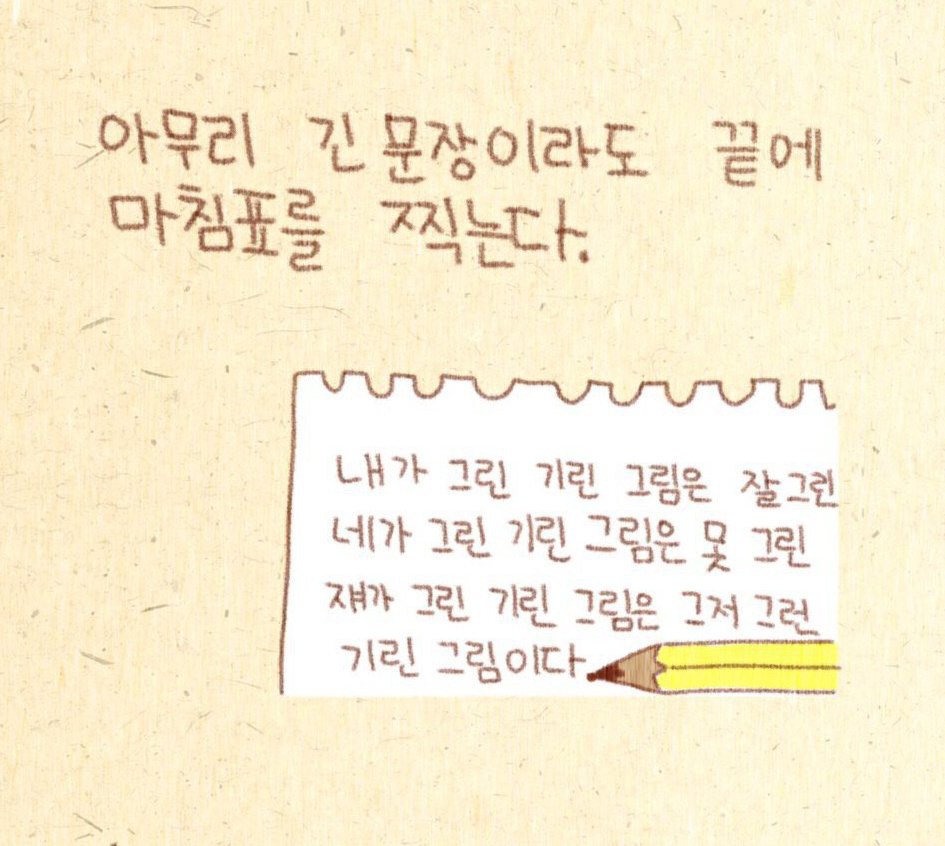 아무리 긴 문장이라도 끝에
마침표를 찍는다.
내가 그린 기린 그림은 잘그린
네가 그린 기린 그림은 못 그린
쟤가 그린 기린 그림은 그저 그런
기린 그림이다